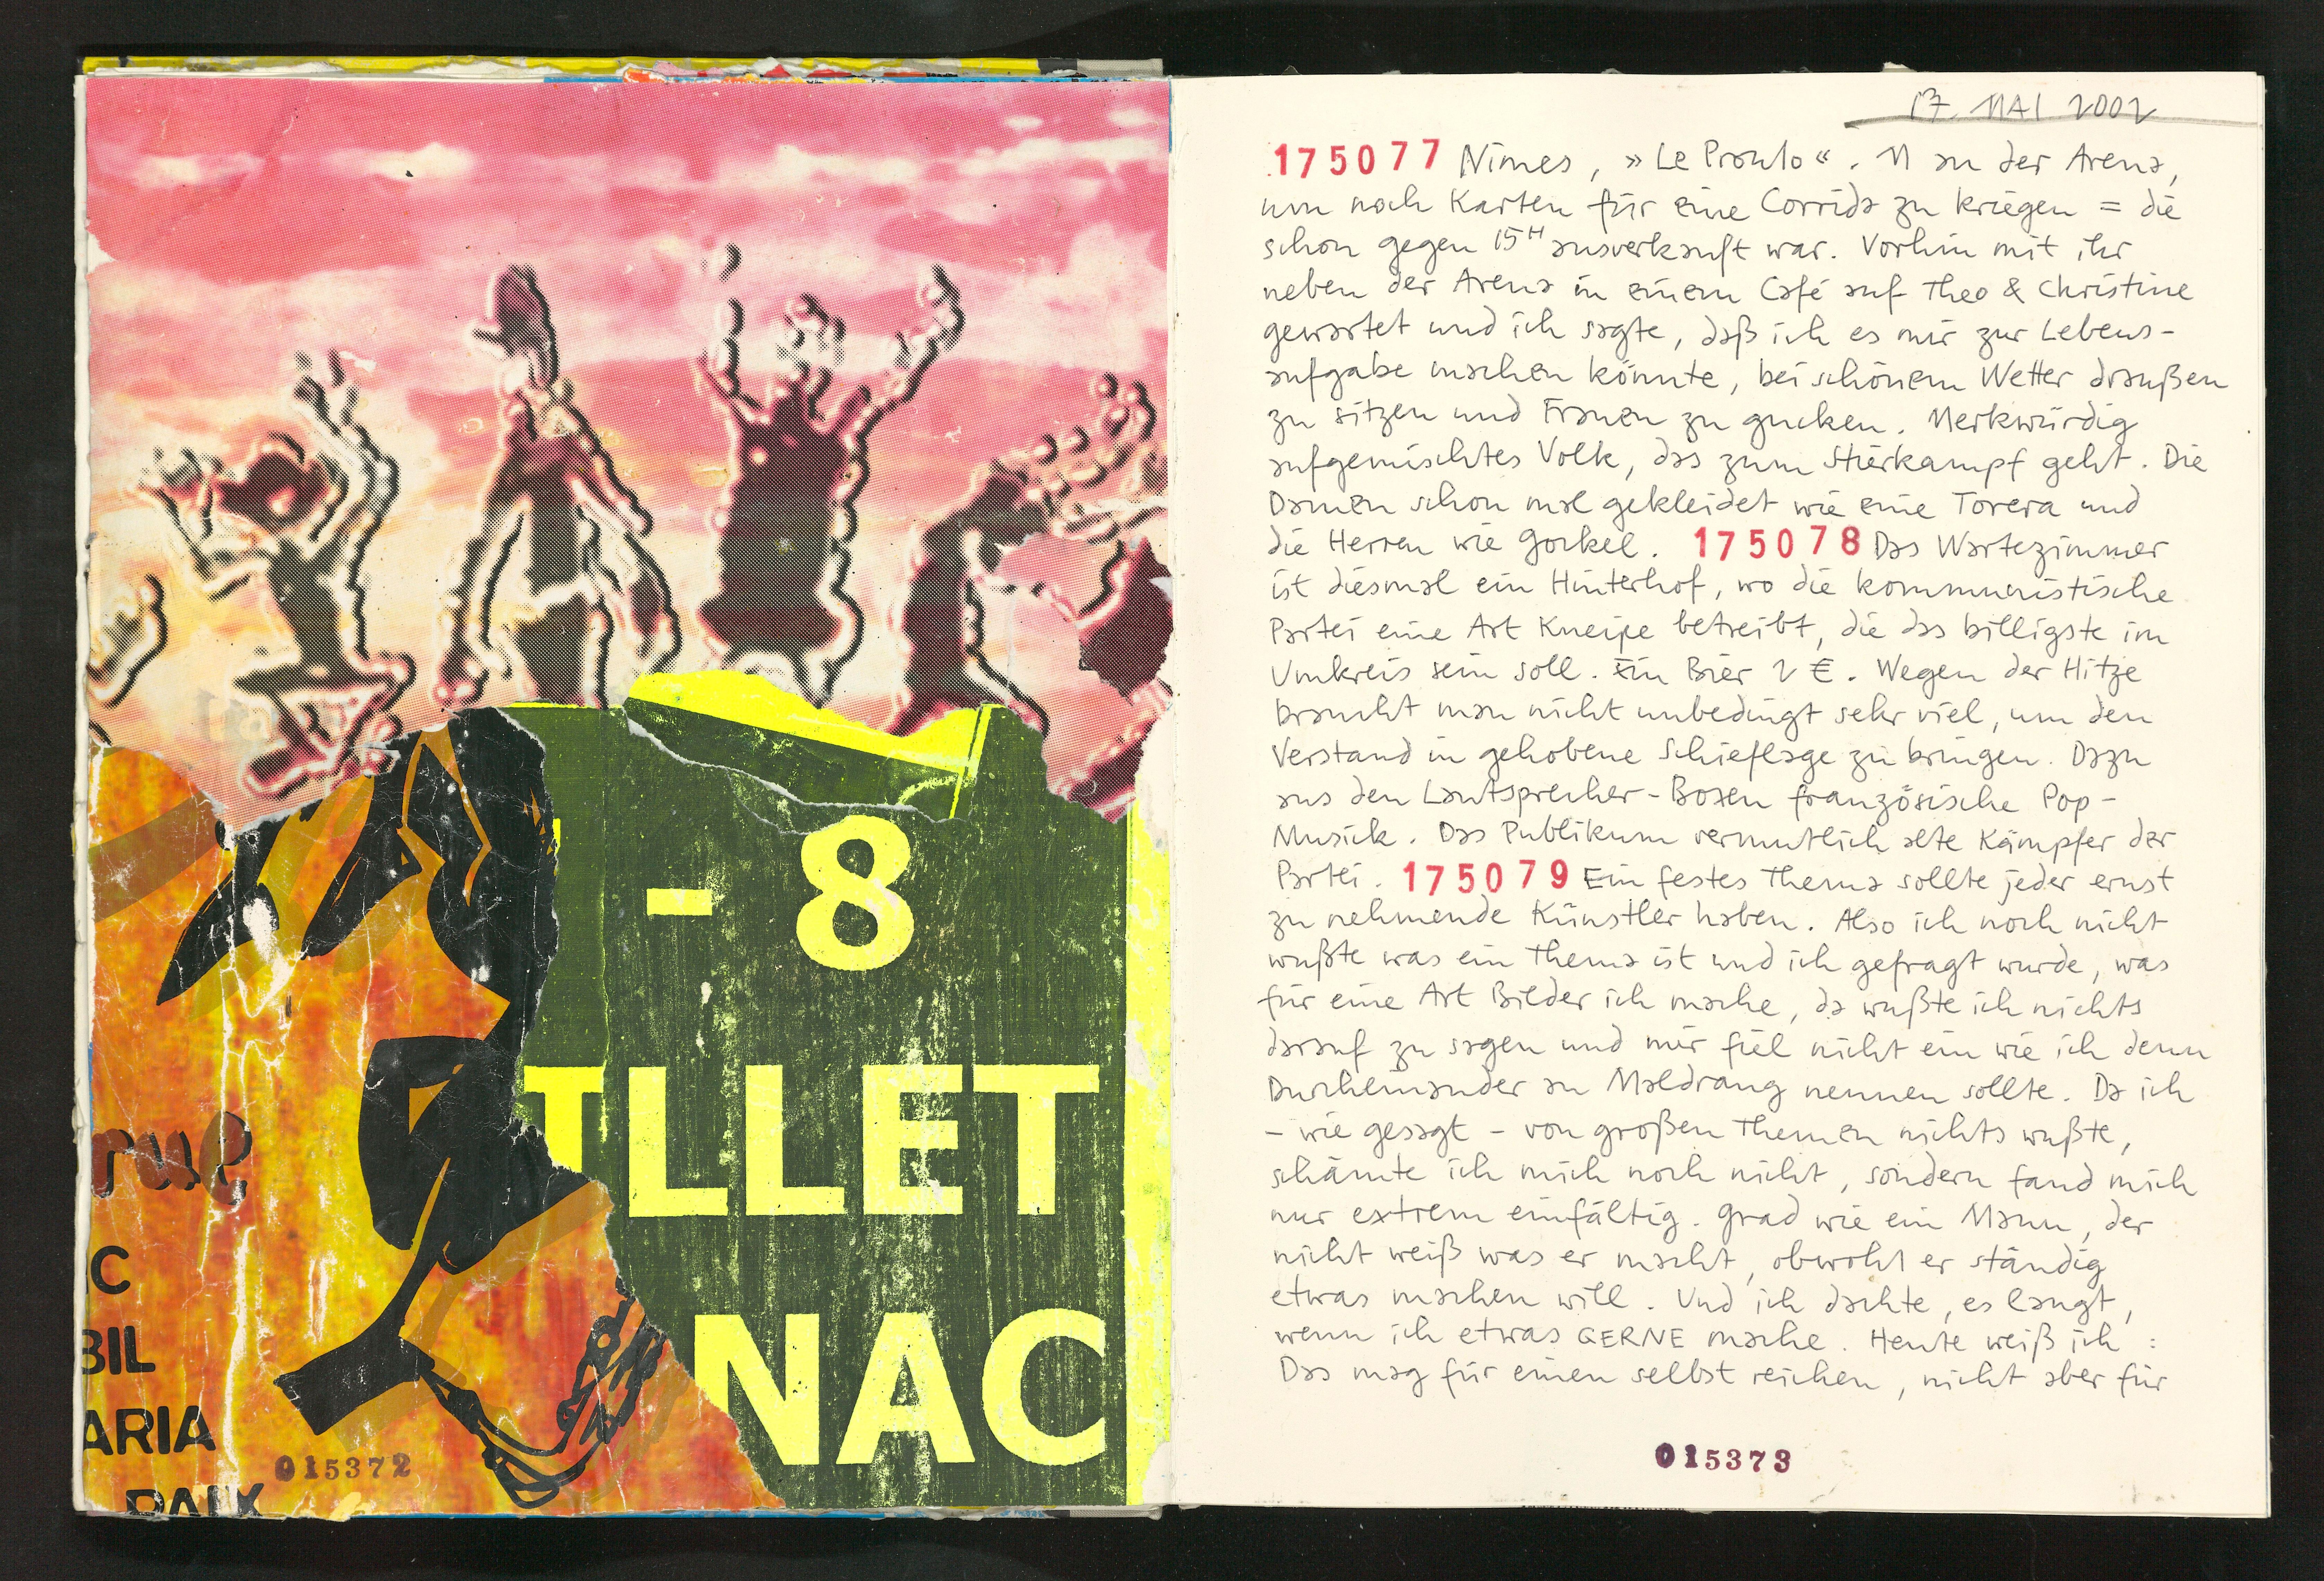 - 8
ILLET
NAC
rue
C
BIL
ARIA
PAIX
015372
17. MAI 2002
175077 Nimes, »Le Pronto«. 11 an der Arena,
um noch Karten für eine Corrida zu kriegen = die
schon gegen 15H ausverkauft war. Vorhin mit ihr
neben der Arena in einem Café auf Theo & Christine
gewartet und ich sagte, daß ich es mir zur Lebens-
aufgabe machen könnte, bei schönem Wetter draußen
zu sitzen und Frauen zu gucken. Merkwürdig
aufgemischtes Volk, das zum Stierkampf geht. Die
Damen schon mal gekleidet wie eine Torera und
die Herren wie Gockel. 175078 Das Wartezimmer
ist diesmal ein Hinterhof, wo die kommunistische
Partei eine Art Kneipe betreibt, die das billigste im
Umkreis sein soll. Ein Bier 2 €. Wegen der Hitze
braucht man nicht unbedingt sehr viel, um den
Verstand in gehobene Schieflage zu bringen. Dazu
aus den Lautsprecher-Boxen französische Pop-
Musick. Das Publikum vermutlich alte Kämpfer der
Partei. 175079 Ein festes Thema sollte jeder ernst
zu nehmende Künstler haben. Also ich noch nicht
wußte was ein Thema ist und ich gefragt wurde, was
für eine Art Bilder ich mache, da wußte ich nichts
darauf zu sagen und mir fiel nicht ein wie ich denn
Durcheinander an Maldrang nennen sollte. Da ich
- wie gesagt - von großen Themen nichts wußte,
schämte ich mich noch nicht, sondern fand mich
nur extrem einfältig. Grad wie ein Mann, der
nicht weiß was er macht, obwohl er ständig
etwas machen will. Und ich dachte, es langt,
wenn ich etwas GERNE mache. Heute weiß ich :
Das mag für einen selbst reichen, nicht aber für
015373